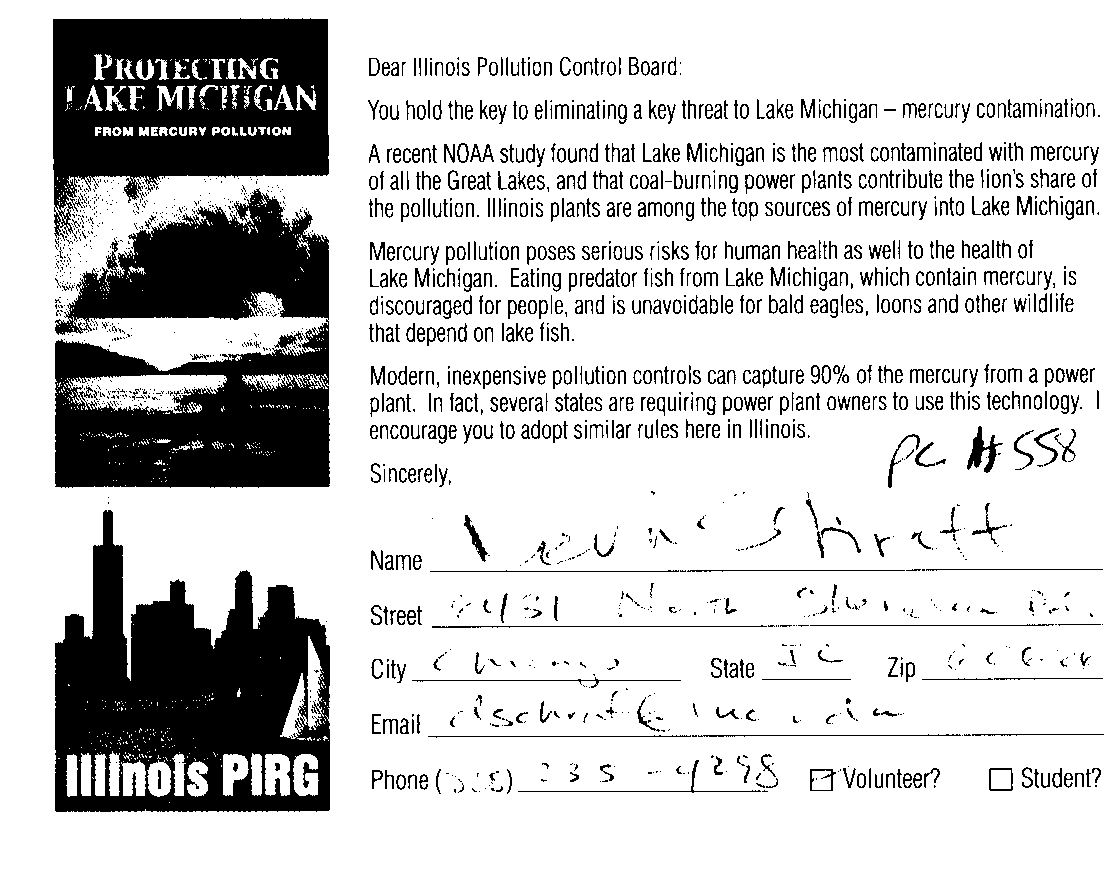 PROTECTING
LAKE MICHIGAN
FROM MERCURY POLLUTION
Dear Illinois Pollution Control Board:
You hold the key to eliminating a key threat to Lake Michigan – mercury contamination.
A recent NOAA study found that Lake Michigan is the most contaminated with mercury
of all the Great Lakes, and that coal-burning power plants contribute the lion's share of
the pollution. Illinois plants are among the top sources of mercury into Lake Michigan.
Mercury pollution poses serious risks for human health as well to the health of
Lake Michigan. Eating predator fish from Lake Michigan, which contain mercury, is
discouraged for people, and is unavoidable for bald eagles, loons and other wildlife
that depend on lake fish.
Modern, inexpensive pollution controls can capture 90% of the mercury from a power
plant. In fact, several states are requiring power plant owners to use this technology. I
encourage you to adopt similar rules here in Illinois.
PC #558
Sincerely,
Name
Street North
City Chicago State IL Zip
Email
Phone 235-4298 Volunteer? Student?
Illinois PIRG